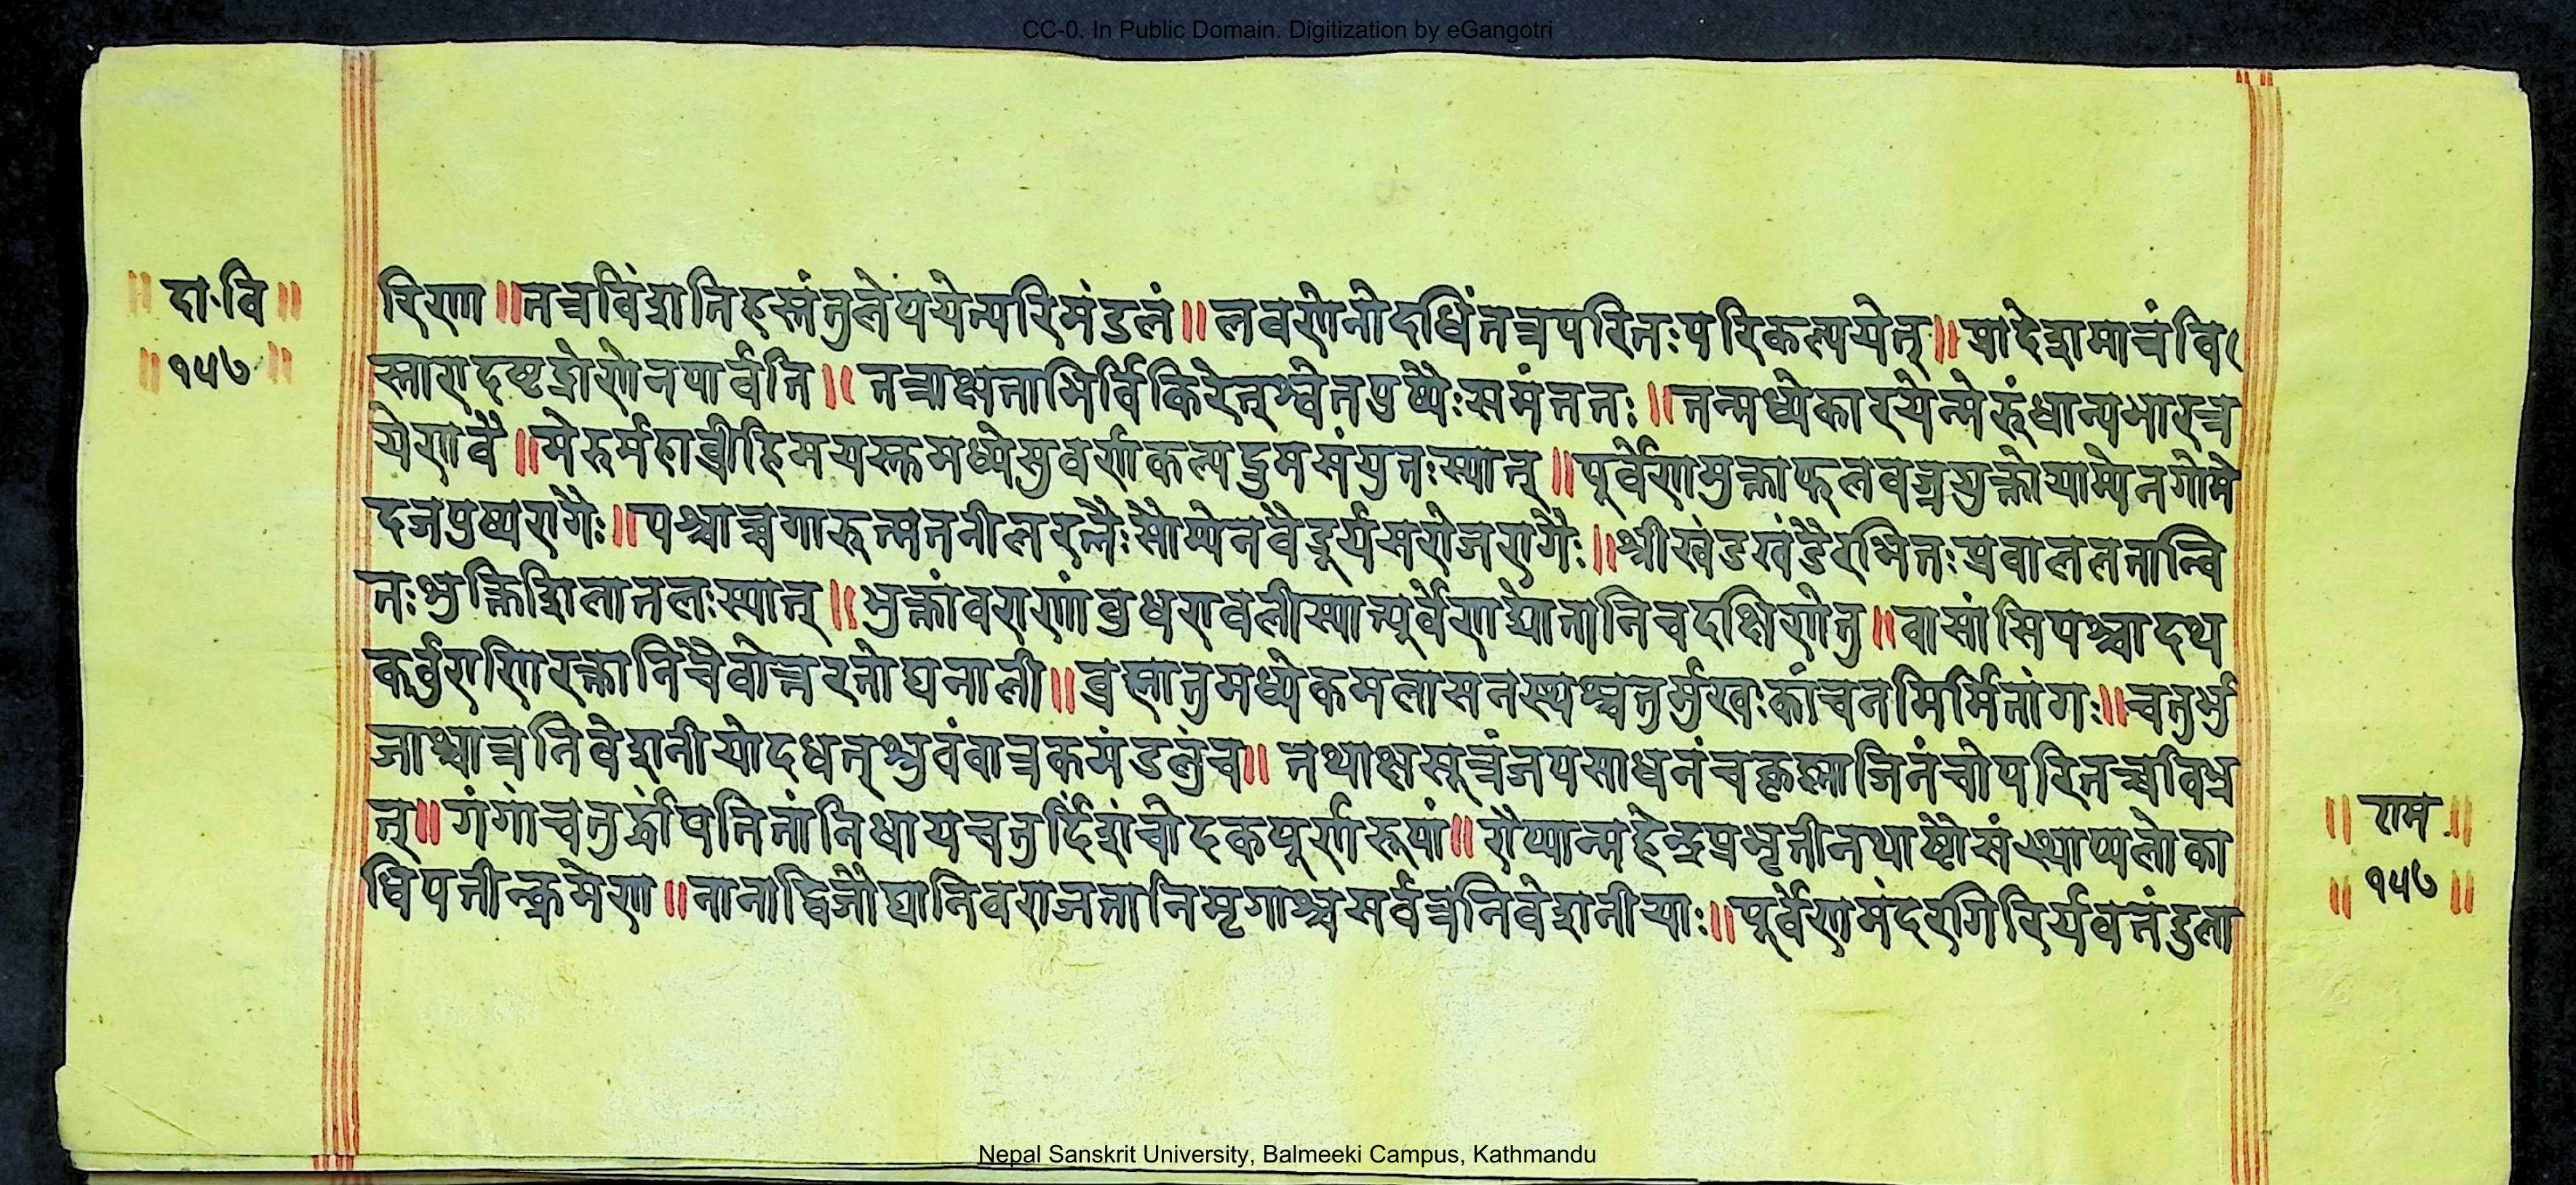 CC-0. In Public Domain. Digitization by eGangotri
॥ दा॰वि ॥
॥ १५७ ॥
रिणा ॥ तत्रविंशतिहस्तंतुलेपयेत्परिमंडलं ॥ लवणेनोदधिंतत्रपरितःपरिकल्पयेत् ॥ प्रादेशमात्रंवि
स्तारादष्टद्रोणेनपार्वति ॥ तत्राक्षताभिर्विकिरेत्श्वेतपुष्पैःसमंततः ॥ तन्मध्येकारयेन्मेरुंधान्यभारत्र
येणवै ॥ मेरुर्महाव्रीहिमयस्तमध्येसुवर्णकल्पद्रुमसंयुतःस्यात् ॥ पूर्वेणमुक्ताफलवज्रयुक्तोयाम्येनगोमे
दजपुष्परागैः ॥ पश्चाच्चगारुत्मतनीलरत्नैःसौम्येनवैडूर्यसरोजरागैः ॥ श्रीखंडखंडैरभितःप्रवाललतान्वि
तःशुक्तिशिलातलःस्यात् ॥ शुक्तांवराण्यंवुधरावलीस्यात्पूर्वेणद्योतानिचदक्षिणेतु ॥ वासांसिपश्चादथ
कर्वुराणिरक्तानिचैवोत्तरतोघनाली ॥ व्रह्मातुमध्येकमलासनस्थश्चतुर्मुखःकांचनमिर्मितांगः ॥ चतुर्भु
जाश्चात्रनिवेशनीयोदधत्श्रुवंवात्रकमंडलुंच ॥ तथाक्षसूत्रंजपसाधनंचकृष्णाजिनंचोपरितच्चविभ्र
त् ॥ गंगांचतुर्द्रांपतितांनिधायचतुर्दिशंचोदकपूर्णरूपां ॥ रौप्यान्महेन्द्रप्रभृतीनथाष्टौसंस्थाप्यलोका
धिपतीन्क्रमेण ॥ नानाद्विजौघानिवराजतानिमृगाश्चसर्वत्रनिवेशनीयाः ॥ पूर्वेणमंदरगिरिर्यवतंडुला
॥ राम ॥
॥ १५७ ॥
Nepal Sanskrit University, Balmeeki Campus, Kathmandu